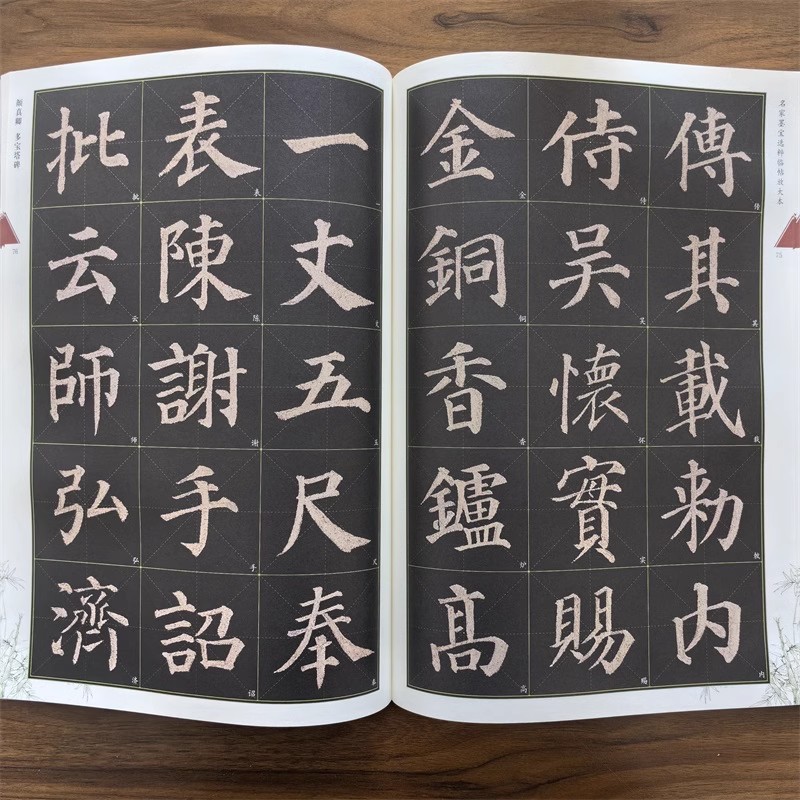 名家墨宝选粹临帖放大本
75
傅其載勑内
侍吴懷實賜
金銅香鑪高
一丈五尺奉
表陳謝手詔
批云師弘濟
其载敕内
侍吴怀实赐
金铜香炉高
一丈五尺奉
表陈谢手诏
批云师弘济
颜真卿 多宝塔碑
76